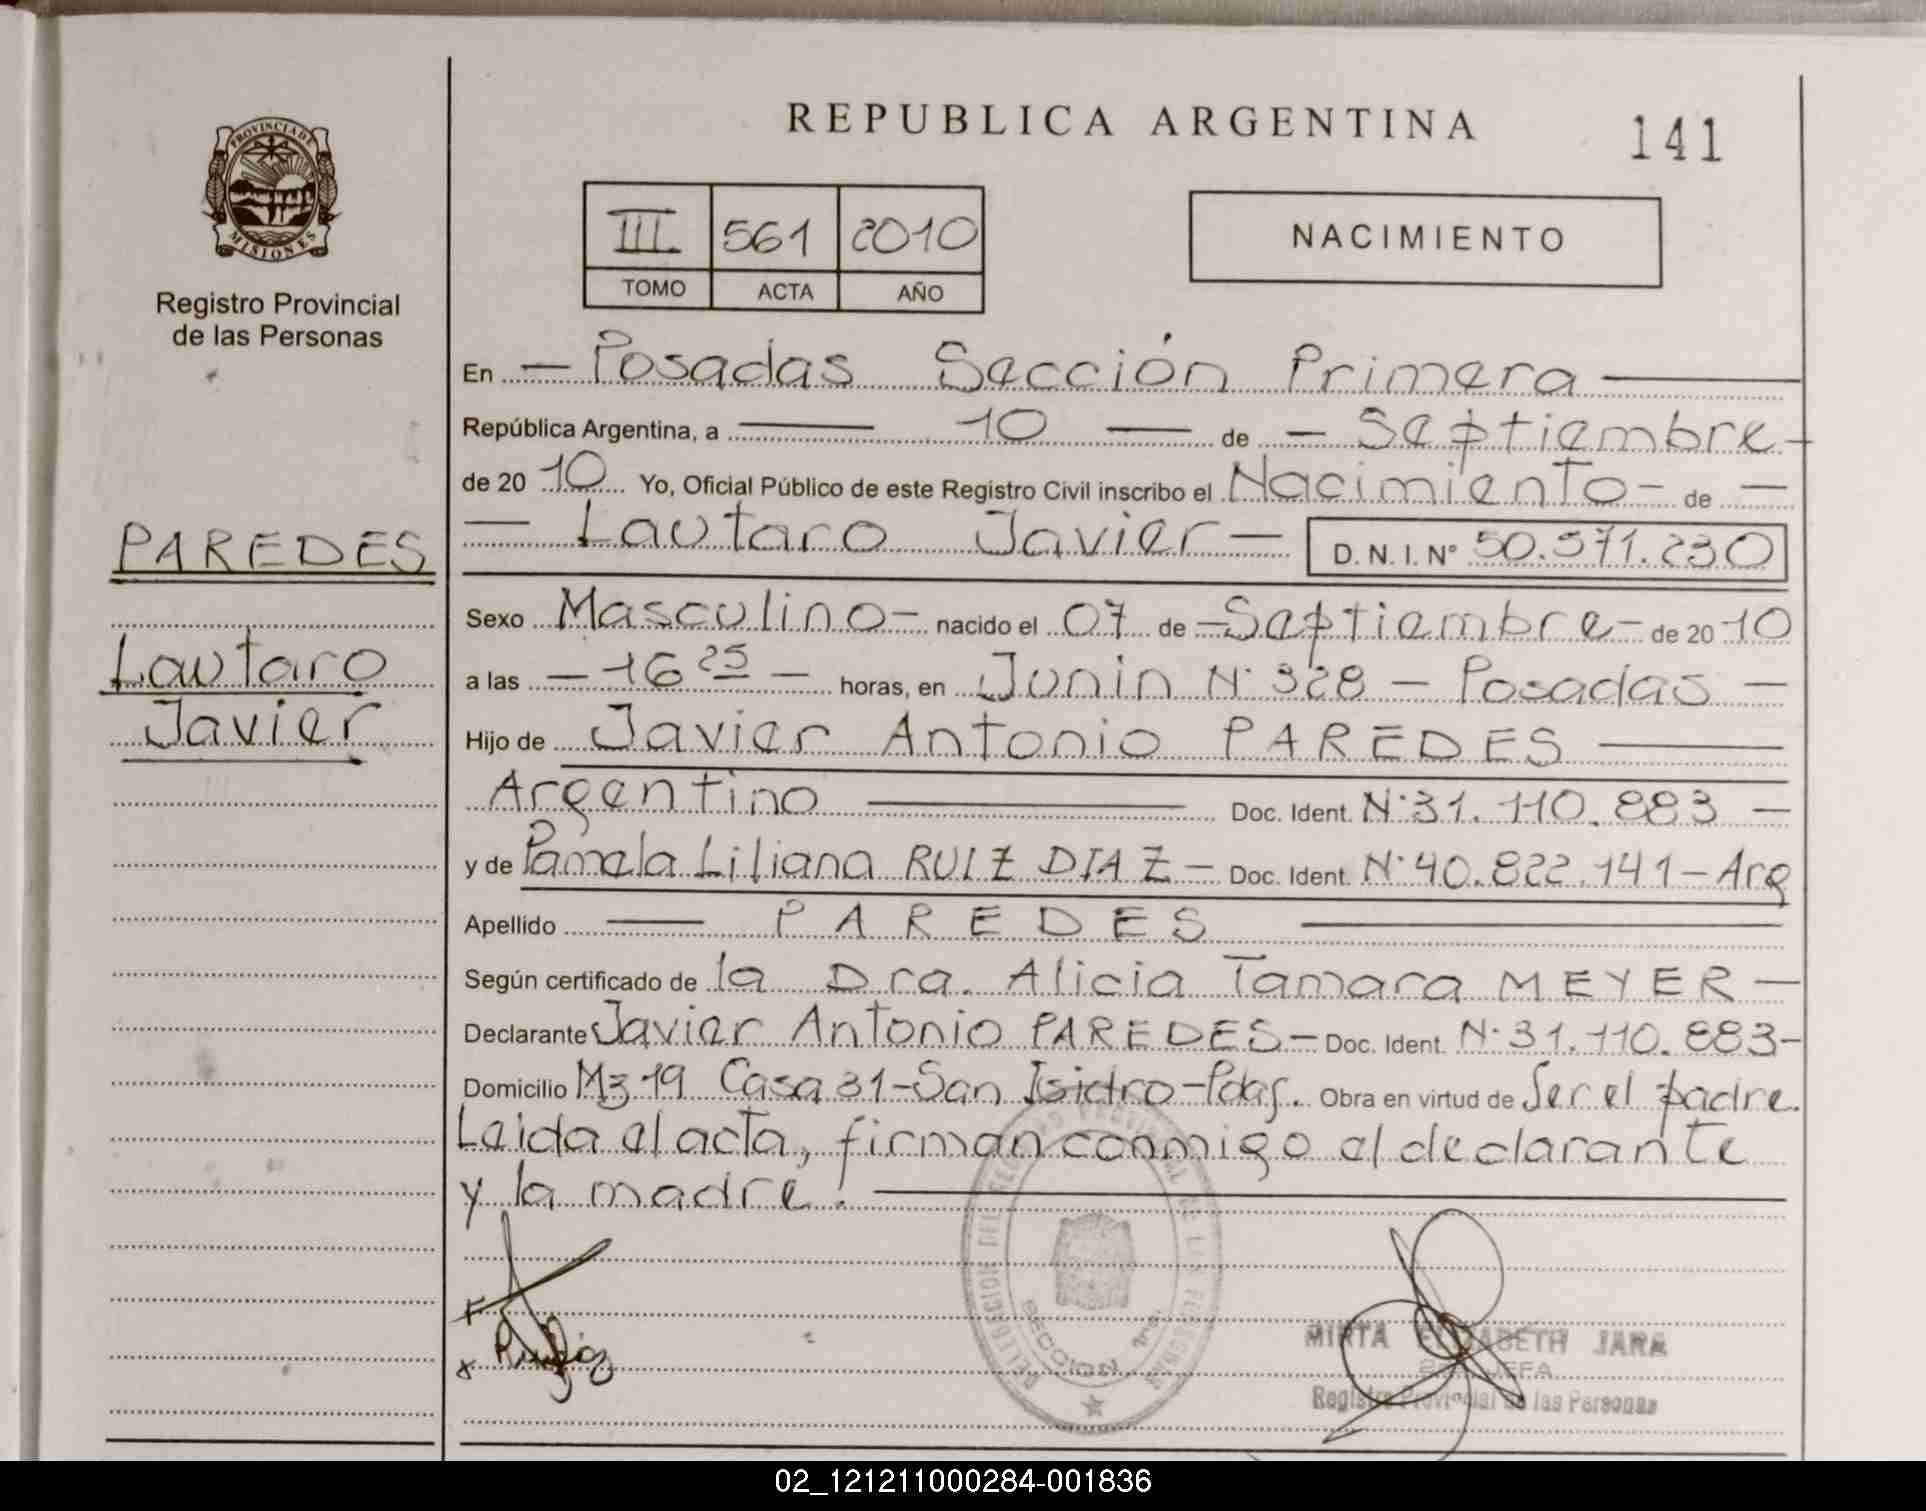 PROVINCIA DE
MISIONES
Registro Provincial
de las Personas
PAREDES
Lautaro
Javier
REPUBLICA ARGENTINA
141
III. 561 2010
TOMO ACTA AÑO
NACIMIENTO
En — Posadas Sección Primera —
República Argentina, a — 10 — de — Septiembre -
de 20 10 Yo, Oficial Público de este Registro Civil inscribo el Nacimiento - de —
— Lautaro Javier — D. N. I. Nº 50.571.230
Sexo Masculino - nacido el 07 de - Septiembre - de 20 10
a las — 16 25 — horas, en Junin N° 328 — Posadas —
Hijo de Javier Antonio PAREDES —
Argentino — Doc. Ident. N° 31.110.883 —
y de Pamela Liliana RUIZ DIAZ — Doc. Ident. N° 40.822.141 - Arg
Apellido — PAREDES —
Según certificado de la Dra. Alicia Tamara MEYER —
Declarante Javier Antonio PAREDES — Doc. Ident. N° 31.110.883 -
Domicilio Mz 19 Casa 31 - San Isidro - Pdas. Obra en virtud de Ser el padre.
Leida el acta, firman conmigo el declarante
y la madre. —
SECCION 1ra.
MIRTA ELIZABETH JARA
JEFA
Registro Provincial de las Personas
02_121211000284-001836